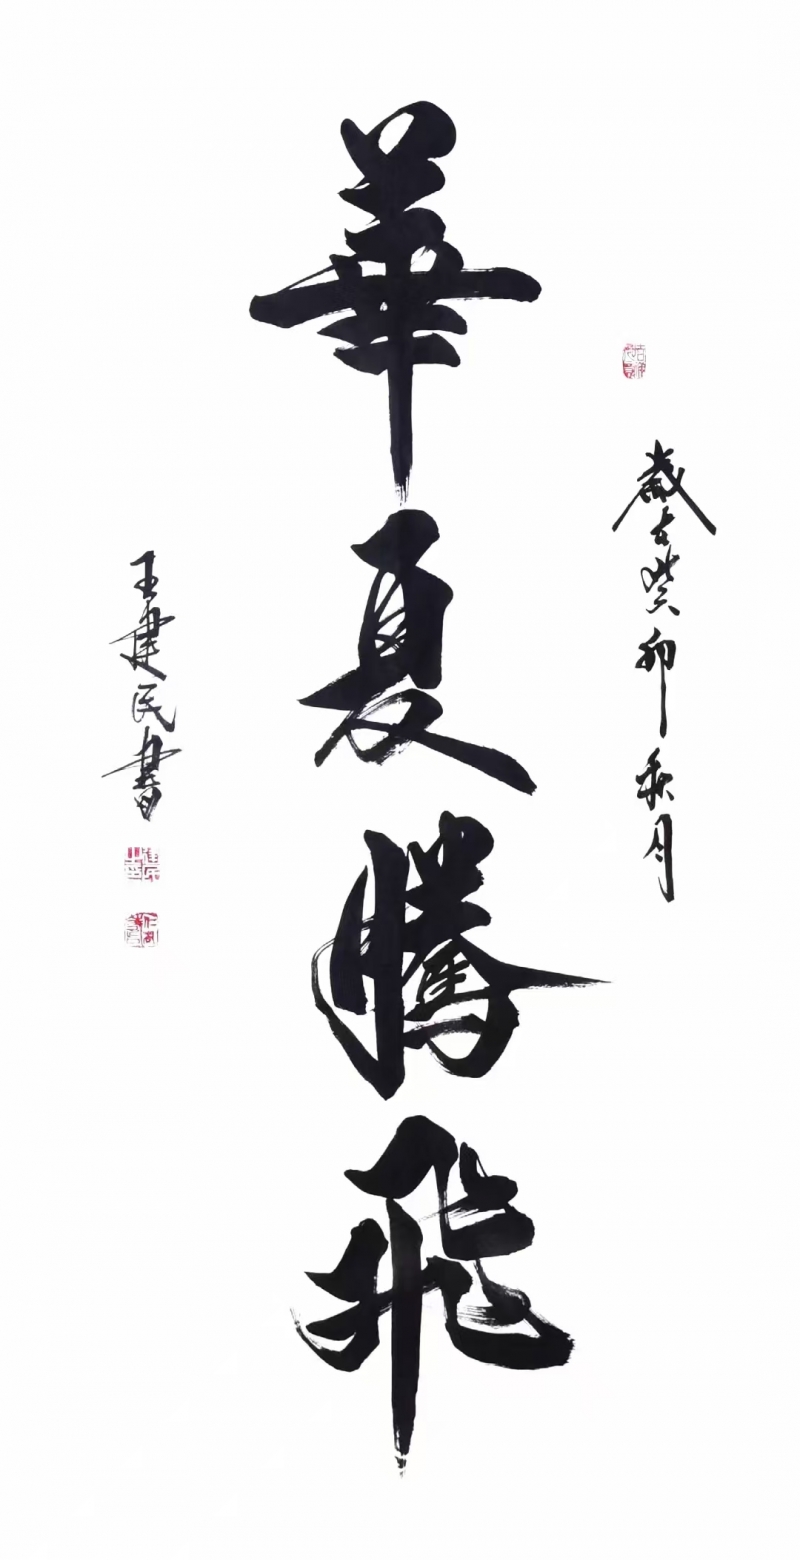 歲在癸卯秋月
華夏騰飛
王建民書